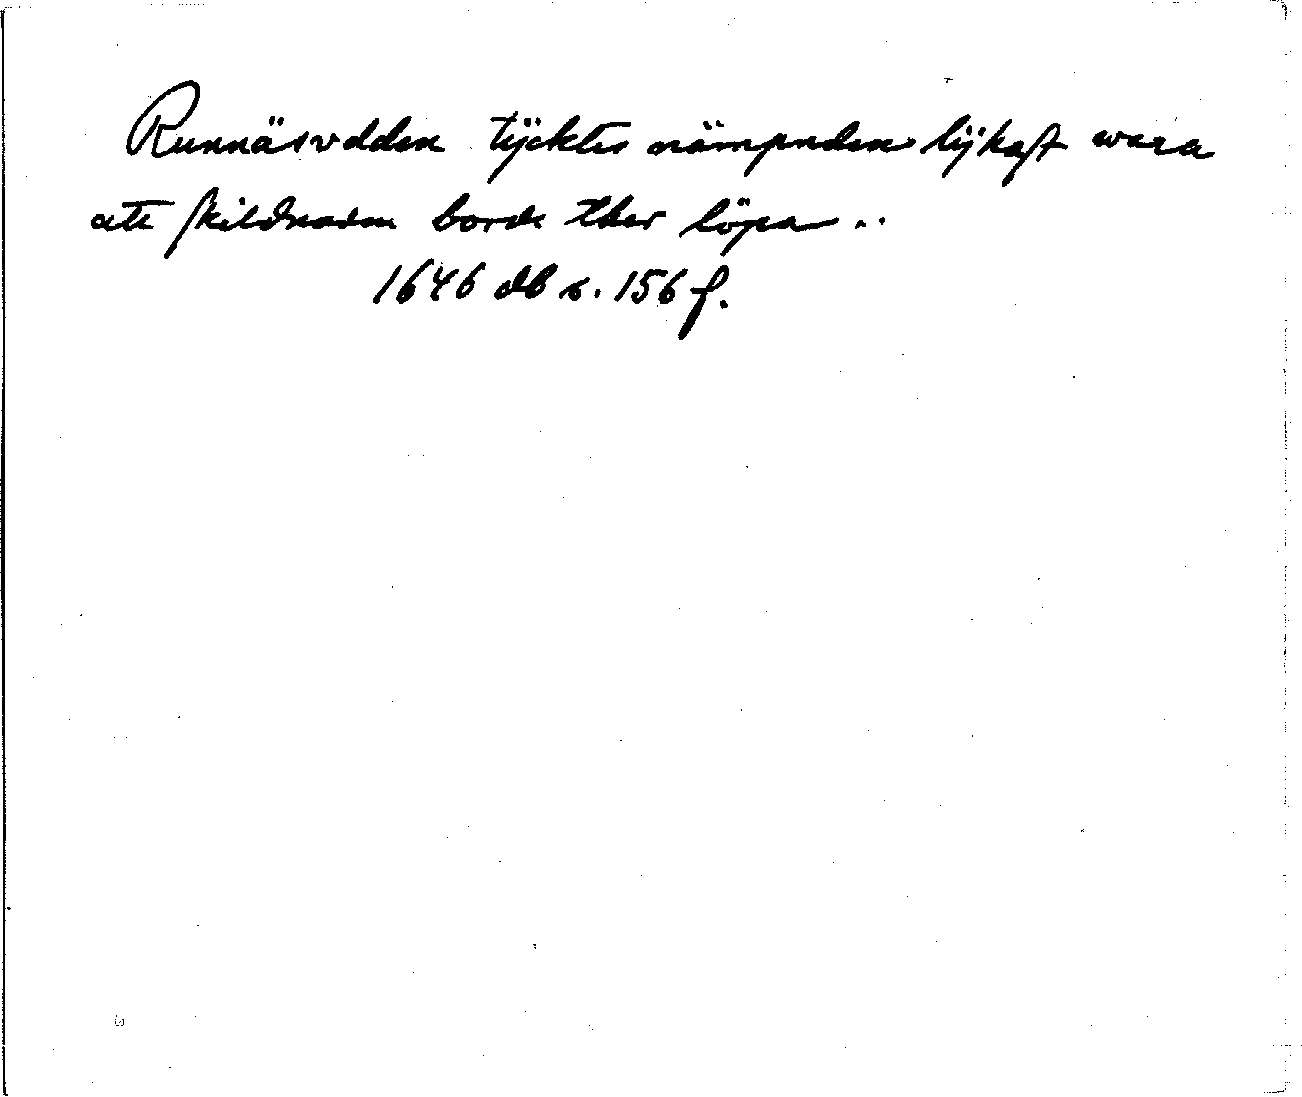 Runnäsvdden tÿcktes nämpnden lijkast wara
att skildnaden borde ther löpa ..
1646 db s. 156 f.